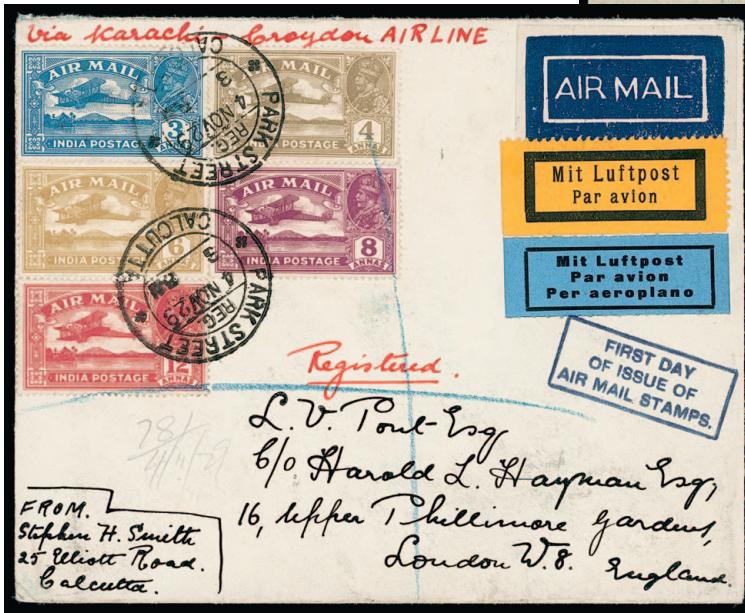 Via Karachi Croydon AIR LINE
AIR MAIL
3 AS
INDIA POSTAGE
AIR MAIL
4 ANNAS
INDIA POSTAGE
AIR MAIL
6 ANNAS
INDIA POSTAGE
AIR MAIL
8 ANNAS
INDIA POSTAGE
AIR MAIL
12 ANNAS
INDIA POSTAGE
PARK STREET
REG.
4 NOV 29
PARK STREET
CALCUTTA
REG.
4 NOV 29
AIR MAIL
Mit Luftpost
Par avion
Mit Luftpost
Par avion
Per aeroplano
FIRST DAY
OF ISSUE OF
AIR MAIL STAMPS.
Registered.
L. V. Pont Esq
C/O Harold L. Hayman Esq,
16, Upper Phillimore Gardens,
London W.8.
England.
FROM.
Stephen H. Smith
25 Elliott Road.
Calcutta.